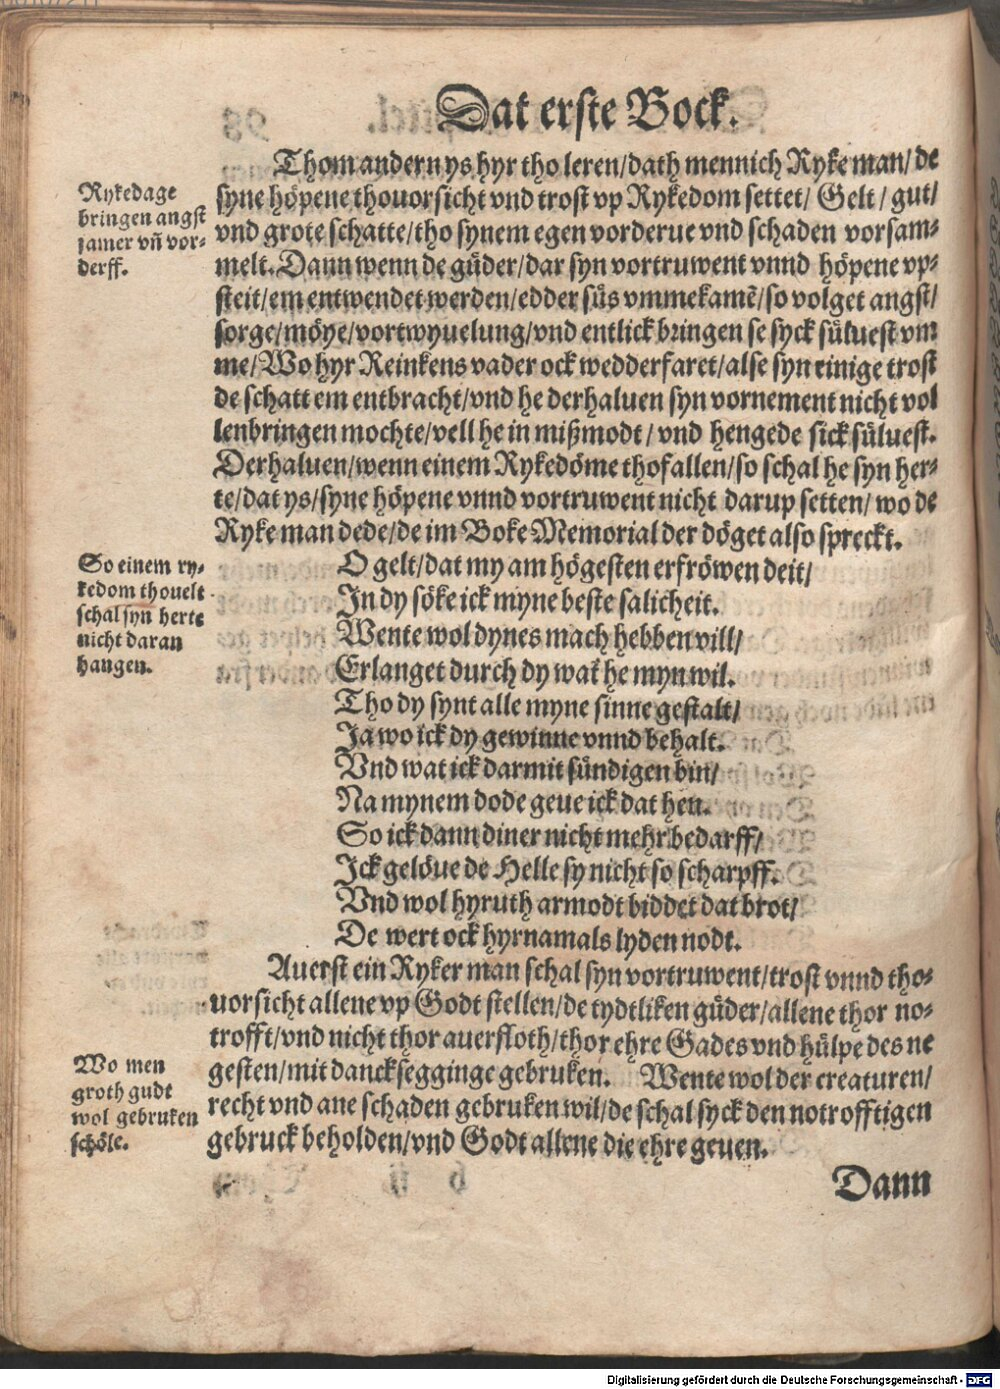 Dat erste Bock.
Thom andern ys hyr tho leren/dath mennich Ryke man/de
Rykedage
bringen angst
jamer vñ vor-
derff.
syne höpene thouorsicht vnd trost vp Rykedom settet/ Gelt/ gut/
vnd grote schatte/tho synem egen vorderue vnd schaden vorsam-
melt. Dann wenn de güder/dar syn vortruwent vnnd höpene vp-
steit/em entwendet werden/edder süs vmmekamē/so volget angst/
sorge/möye/vortwyuelung/vnd entlick bringen se syck süluest vm
me/Wo hyr Reinkens vader ock wedderfaret/alse syn einige trost
de schatt em entbracht/vnd he derhaluen syn vornement nicht vol
lenbringen mochte/vell he in mißmodt/vnd hengede sick süluest.
Derhaluen/wenn einem Rykedöme thofallen/so schal he syn her-
te/dat ys/syne höpene vnnd vortruwent nicht darup setten/wo de
Ryke man dede/de im Boke Memorial der döget also spreckt.
So einem ry-
kedom thouelt
schal syn herte
nicht daran
hangen.
O gelt/dat my am högesten erfröwen deit/
In dy söke ick myne beste salicheit.
Wente wol dynes mach hebben vill/
Erlanget durch dy wat he myn wil.
Tho dy synt alle myne sinne gestalt/
Ja wo ick dy gewinne vnnd behalt.
Vnd wat ick darmit sündigen bin/
Na mynem dode geue ick dat hen.
So ick dann diner nicht mehr bedarff/
Ick gelöue de Helle sy nicht so scharpff.
Vnd wol hyruth armodt biddet dat brot/
De wert ock hyrnamals lyden nodt.
Auerst ein Ryker man schal syn vortruwent/trost vnnd tho-
uorsicht allene vp Godt stellen/de tydtliken güder/allene thor no-
trofft/vnd nicht thor auerfloth/thor ehre Gades vnd hülpe des ne
Wo men
groth gudt
wol gebruken
schöle.
gesten/mit dancksegginge gebruken. Wente wol der creaturen/
recht vnd ane schaden gebruken wil/de schal syck den notrofftigen
gebruck beholden/vnd Godt allene die ehre geuen.
Dann
Digitalisierung gefördert durch die Deutsche Forschungsgemeinschaft - DFG